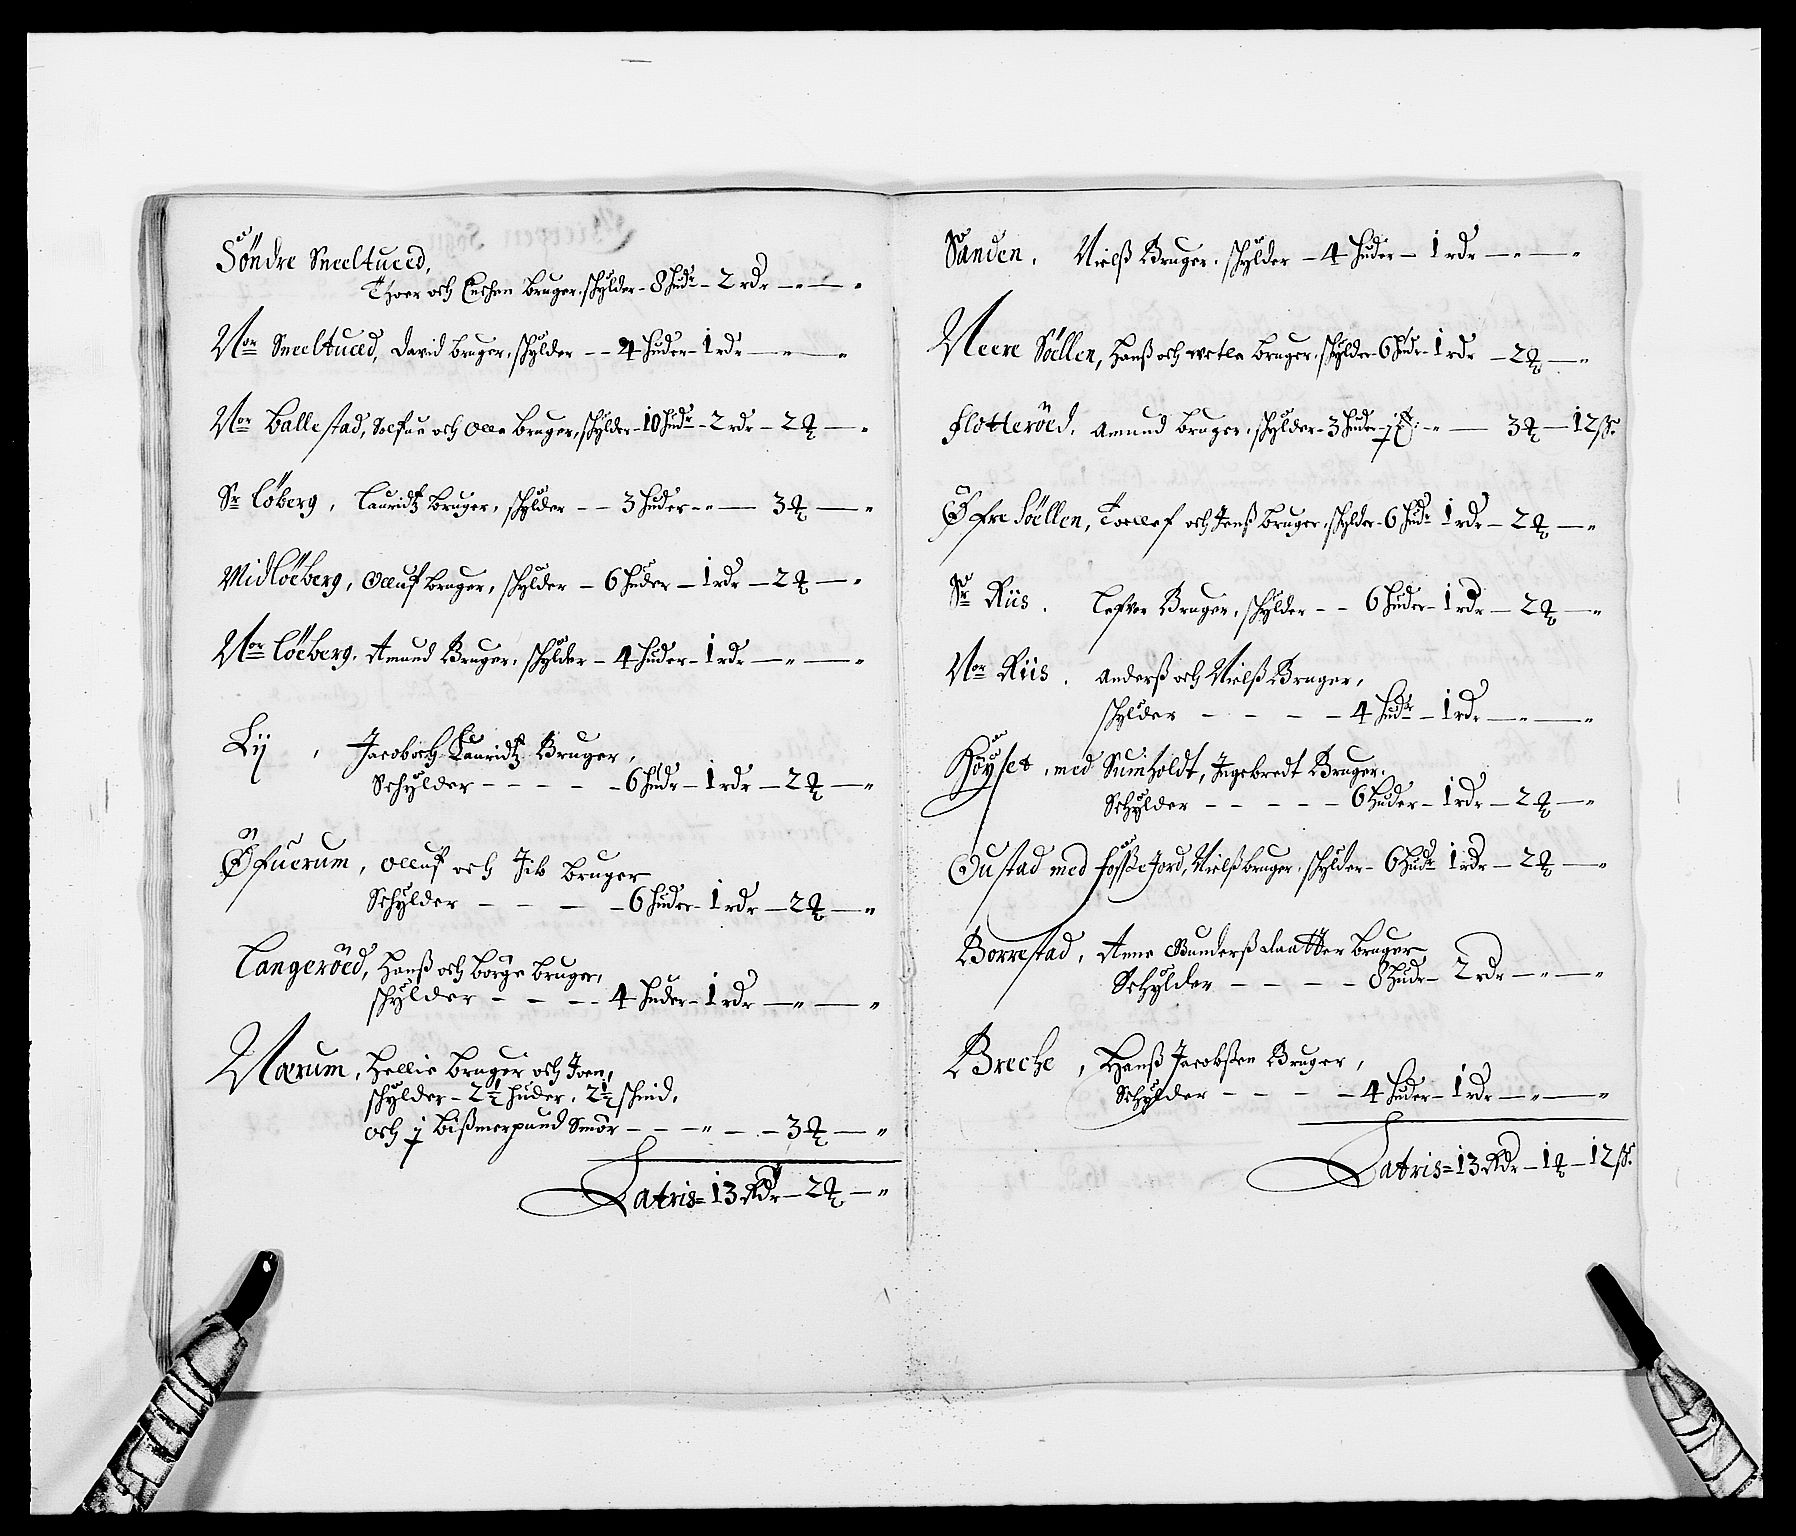 Søndre Sneeltued,
Thoer och Eschen bruger, schylder - 8 hudr - 2 rdr - " - "
Nor Sneeltued, David bruger, schylder - - 4 huder - 1 rdr - " - "
Nor Ballestad, Solfue och Olle bruger, schylder - 10 hudr - 2 rdr - 2 ꝗ - "
Sr Løberg, Lauridtz bruger, schylder - - 3 huder - " - 3 ꝗ - "
Midløeberg, Olluf bruger, schylder - 6 huder - 1 rdr - 2 ꝗ - "
Nor Løeberg. Amund Bruger, schylder - 4 huder - 1 rdr - " - "
Lij, Jacob och Lauridtz Bruger,
Schylder - - - - - 6 hudr - 1 rdr - 2 ꝗ - "
Øfuerum, Olluf och Jib bruger
Schylder - - - - 6 huder - 1 rdr - 2 ꝗ - "
Langerøed, Hanß och Børge bruger,
schylder - - - - 4 huder - 1 rdr - " - "
Nærum, Hellie bruger och Joen,
schylder - 2½ huder, 2½ schind,
och j bißmerpund Smør - - - " - - 3 ꝗ - "
Latris = 13 Rdr - 2 ꝗ - "
Sanden. Nielß Bruger, schylder - 4 huder - 1 rdr - " - "
Neere Søellen, Hanß och bruger, schylder 6 hudr - 1 rdr - 2 ꝗ - "
Flotterøed. Amund bruger, schylder - 3 huder - " - 3 ꝗ - 12 ß.
Øfre Søellen, Toellef och Jenß bruger, schylder - 6 hudr 1 rdr - 2 ꝗ - "
Sr Riis. Lefver Bruger, schylder - - 6 huder - 1 rdr - 2 ꝗ - "
Nor Riis. Anderß och Nielß Bruger,
schylder - - - - 4 hudr - 1 rdr - " - "
Køyset, med Sumholdt, Ingebredt Bruger.
Schylder - - - - - 6 huder - 1 rdr - 2 ꝗ - "
Oustad med Fosße Jord, Nielß bruger, schylder - 6 hudr 1 rdr - 2 ꝗ - "
Borrestad, Anne Gunderß daatter bruger
Schylder - - - - 8 hudr - 2 rdr - " - "
Breche, Hanß Jacobßen Bruger,
Schylder - - - - 4 huder - 1 rdr - " - "
Latris = 13 Rdr - 1 ꝗ - 12 ß.